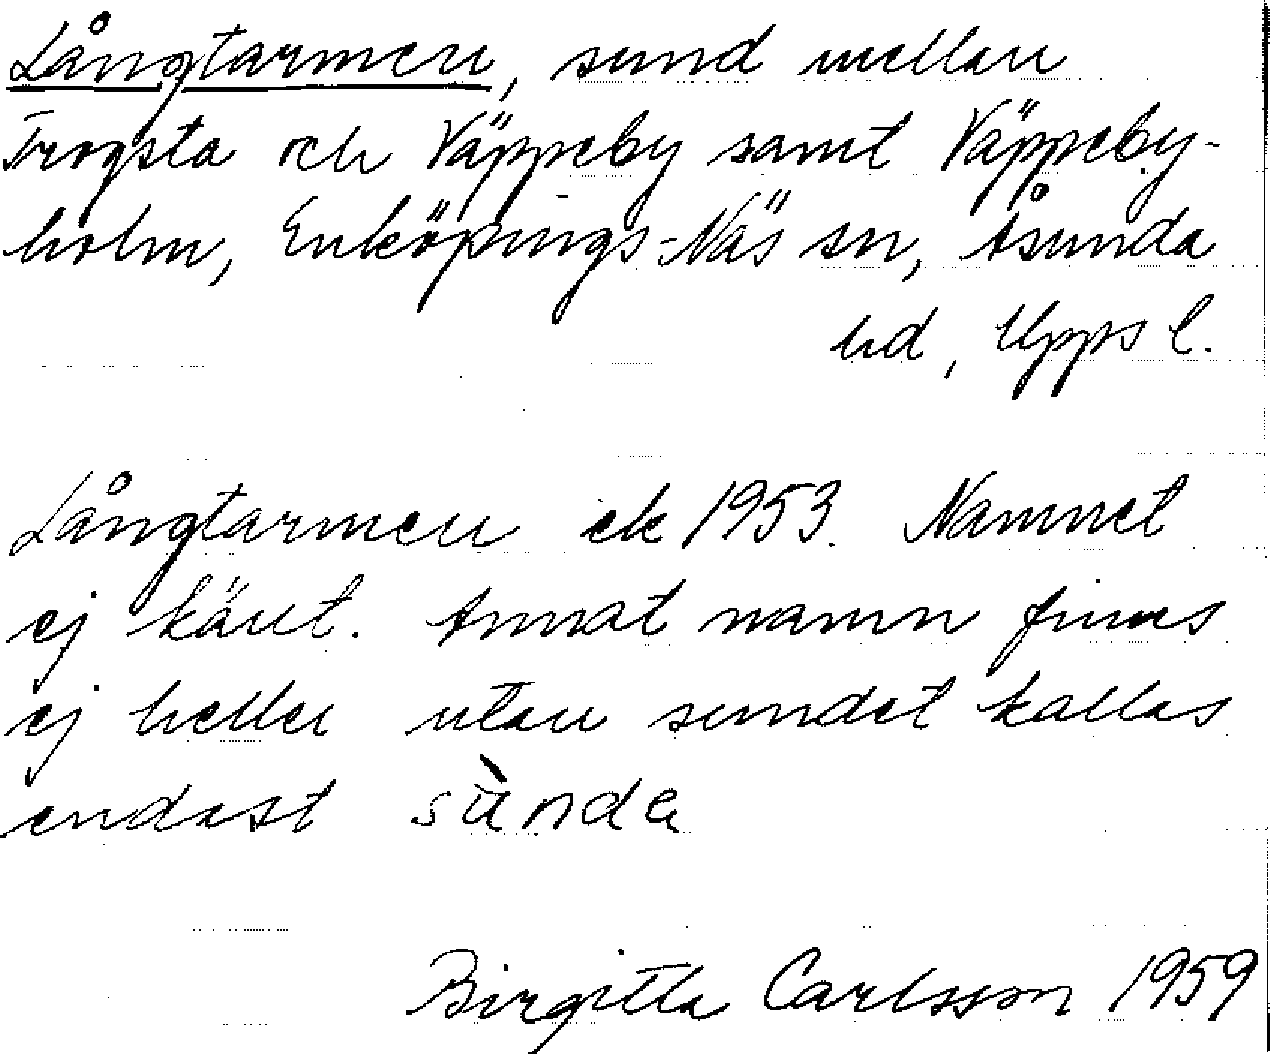 Långtarmen, sund mellan
Trogsta och Väppeby samt Väppeby-
holm, Enköpings-Näs sn, Åsunda
hd, Upps l.
Långtarmen ek 1953. Namnet
ej känt. Annat namn finns
ej heller utan sundet kallas
endast sùnda
Birgitta Carlsson 1959